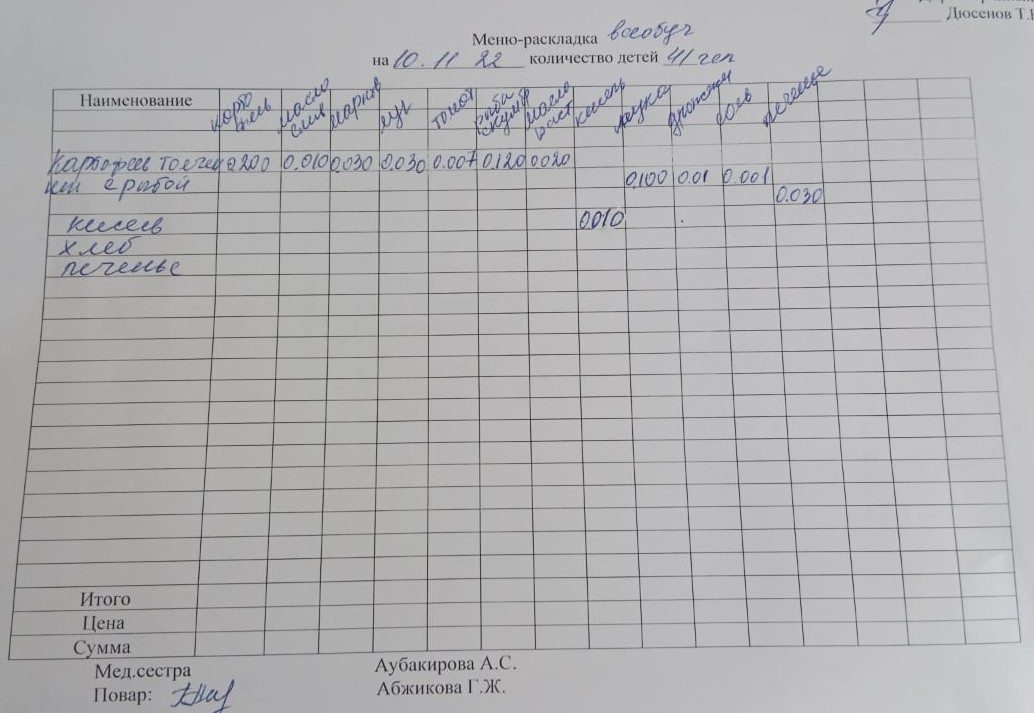 Дюсенов Т.
Меню-раскладка всеобуч
на 10. 11 22 количество детей 41 чел
Наименование карто фель масло слив марков лук томат рыба скумбр масло раст кисель мука дрожжи соль печенье
Картофель толчен 0.200 0.010 0.030 0.030 0.007 0.120 0020
ный с рыбой 0.100 0.01 0.001
0.030
кисель 0010
хлеб
печенье
Итого
Цена
Сумма
Мед.сестра Аубакирова А.С.
Повар: Абжикова Г.Ж.